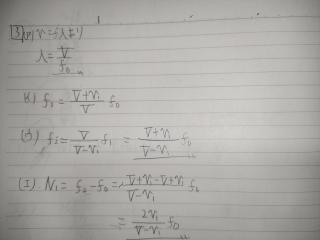 3 (ア) V=fλより
λ=V/f₀
(イ) f₁=(V+v₁)/V f₀
(ウ) f₂=V/(V-v₁) f₁ = (V+v₁)/(V-v₁) f₀
(エ) N₁= f₂-f₀= (V+v₁-V+v₁)/(V-v₁) f₀
= 2v₁/(V-v₁) f₀